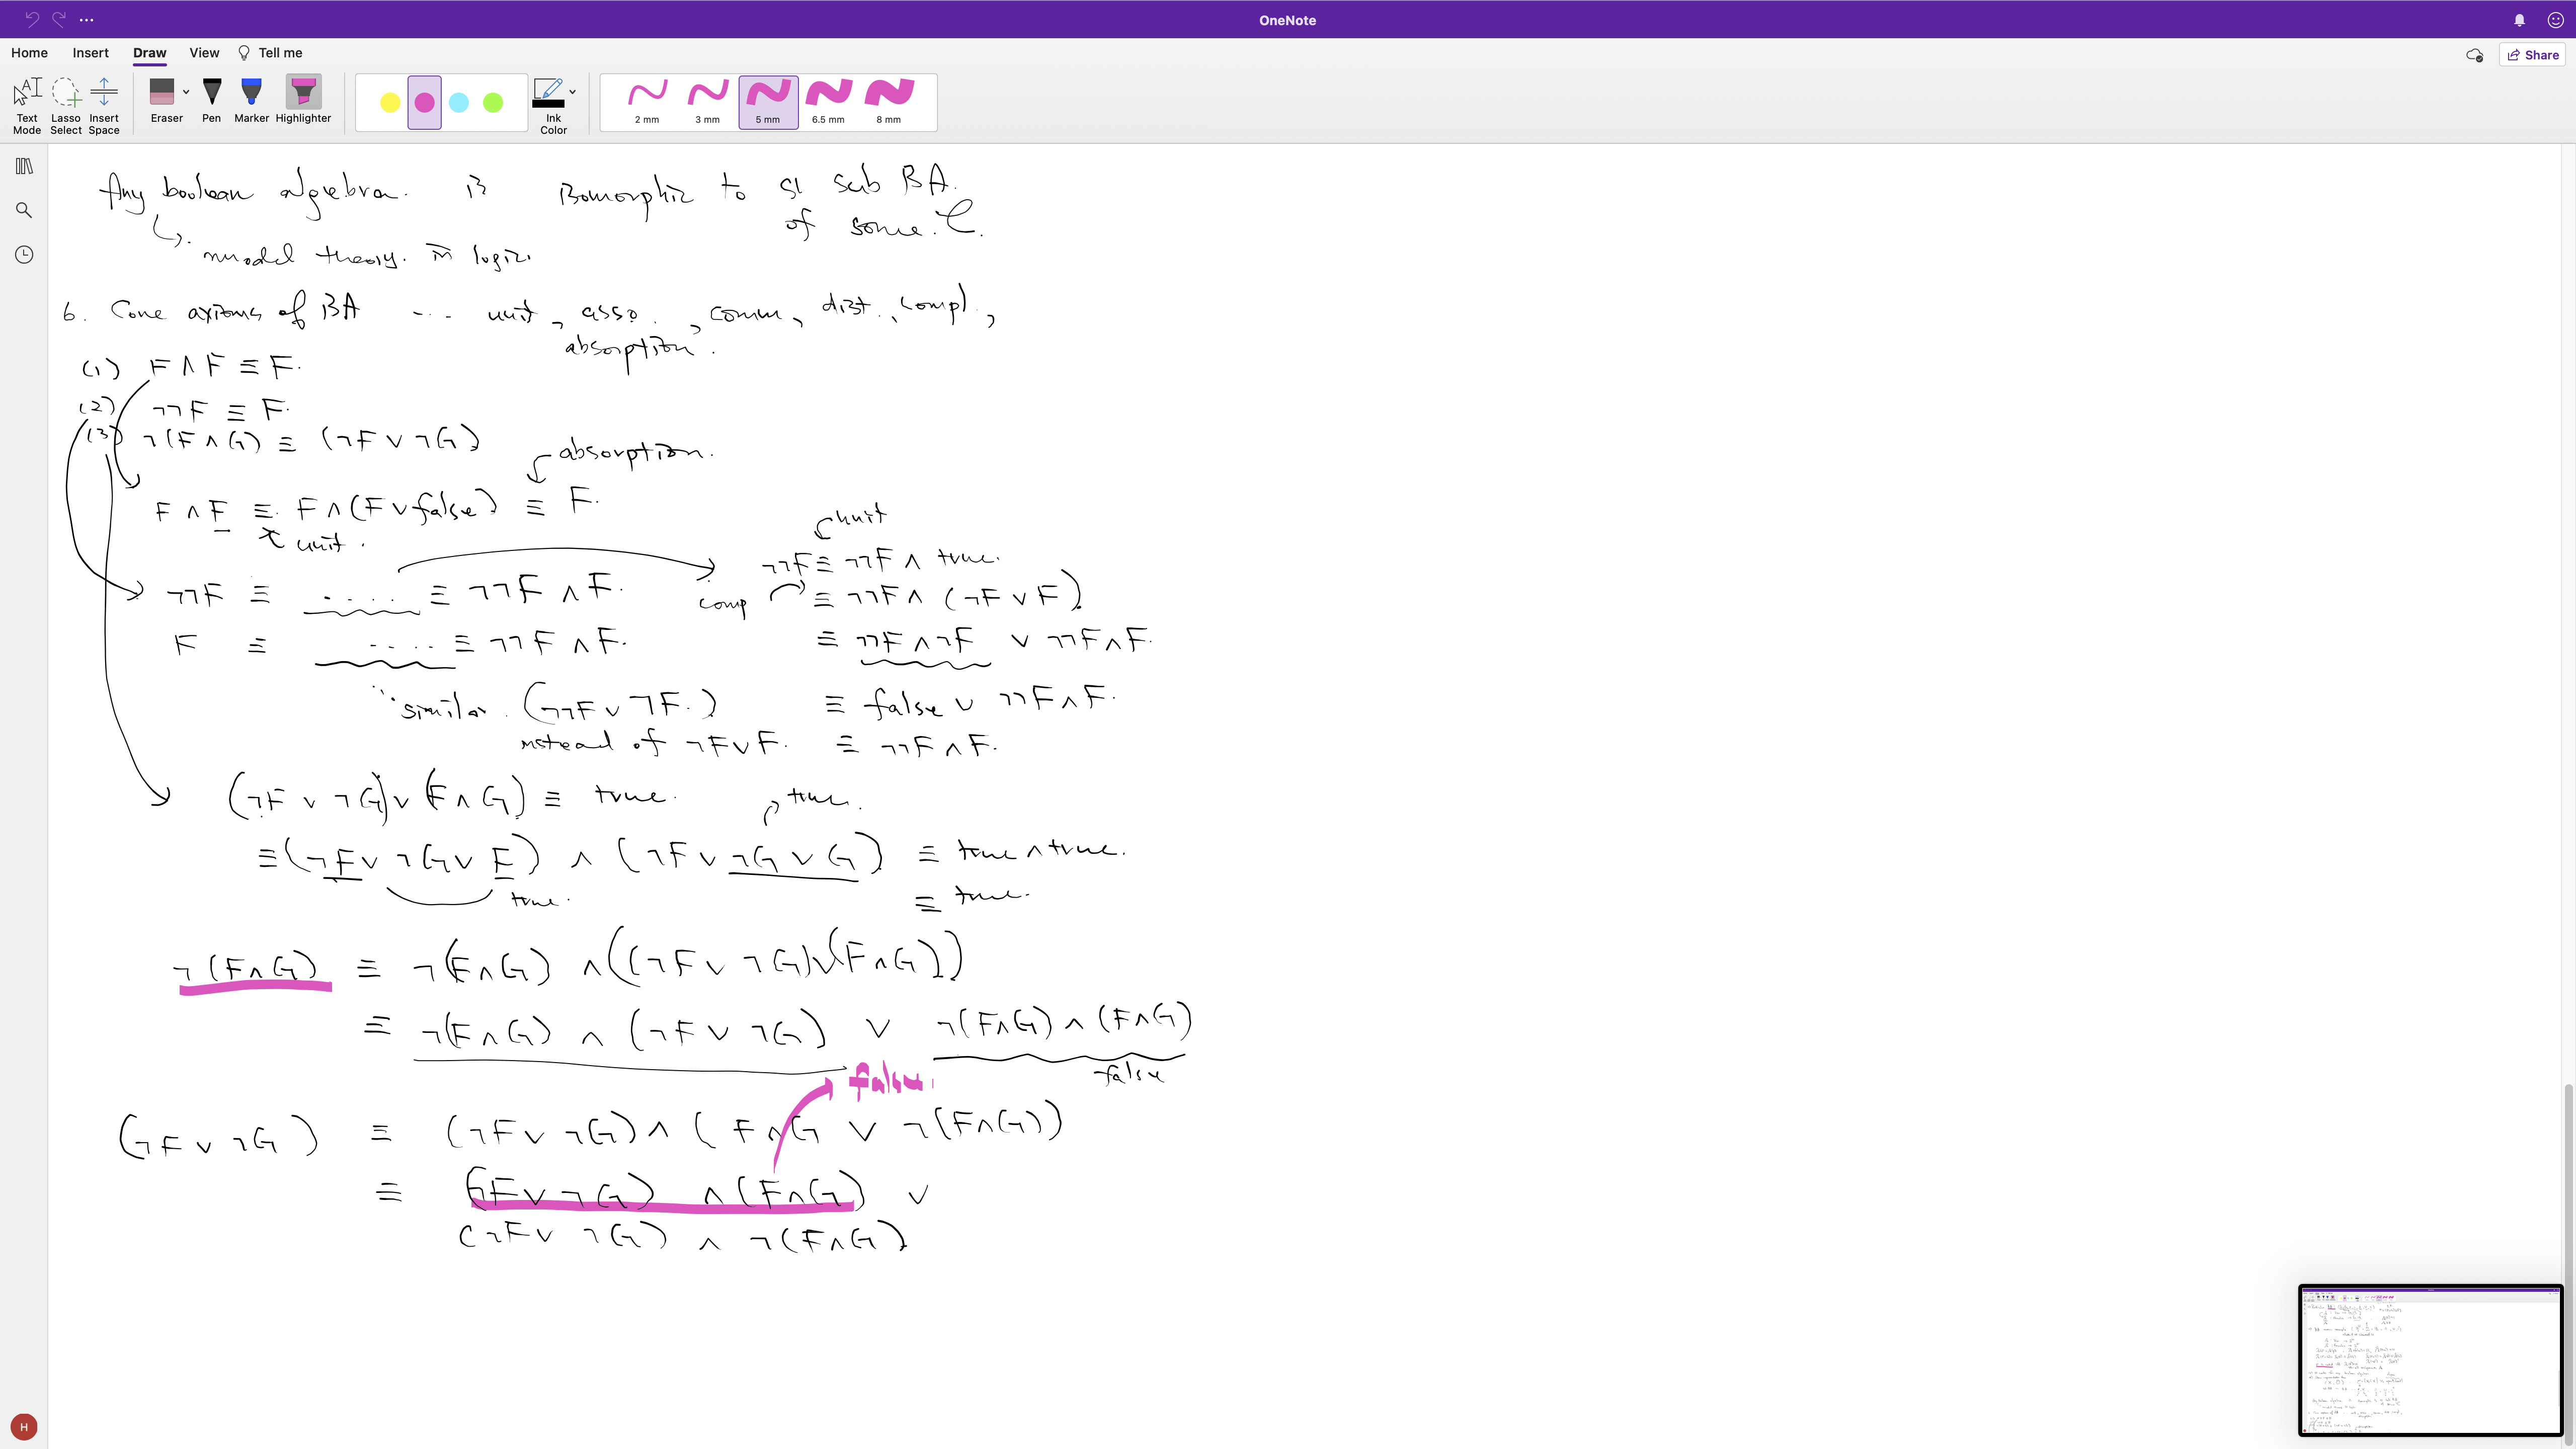 OneNote
Home Insert Draw View Tell me
Share
Text Mode
Lasso Select
Insert Space
Eraser
Pen
Marker
Highlighter
Ink Color
2 mm
3 mm
5 mm
6.5 mm
8 mm
Any boolean algebra. is isomorphic to a sub BA.
of some.
model theory. in logic.
6. Core axioms of BA ... unit, asso., comm, dist., compl.,
absorption.
(1) F ∧ F ≡ F.
(2) ¬¬F ≡ F.
(3) ¬(F ∧ G) ≡ (¬F ∨ ¬G)
absorption.
F ∧ F ≡ F ∧ (F ∨ false) ≡ F.
unit.
unit
¬¬F ≡ ¬¬F ∧ true.
¬¬F ≡ .... ≡ ¬¬F ∧ F.
comp ≡ ¬¬F ∧ (¬F ∨ F)
F ≡ .... ≡ ¬¬F ∧ F.
≡ ¬¬F ∧ ¬F ∨ ¬¬F ∧ F.
similar (¬¬F ∨ ¬F.)
≡ false ∨ ¬¬F ∧ F.
instead of ¬F ∨ F.
≡ ¬¬F ∧ F.
(¬F ∨ ¬G) ∨ (F ∧ G) ≡ true.
true.
≡ (¬F ∨ ¬G ∨ F) ∧ (¬F ∨ ¬G ∨ G) ≡ true ∧ true.
true.
≡ true.
¬(F ∧ G) ≡ ¬(F ∧ G) ∧ ((¬F ∨ ¬G) ∨ (F ∧ G))
≡ ¬(F ∧ G) ∧ (¬F ∨ ¬G) ∨ ¬(F ∧ G) ∧ (F ∧ G)
false
false.
(¬F ∨ ¬G) ≡ (¬F ∨ ¬G) ∧ (F ∧ G ∨ ¬(F ∧ G))
≡ (¬F ∨ ¬G) ∧ (F ∧ G) ∨
(¬F ∨ ¬G) ∧ ¬(F ∧ G)
H